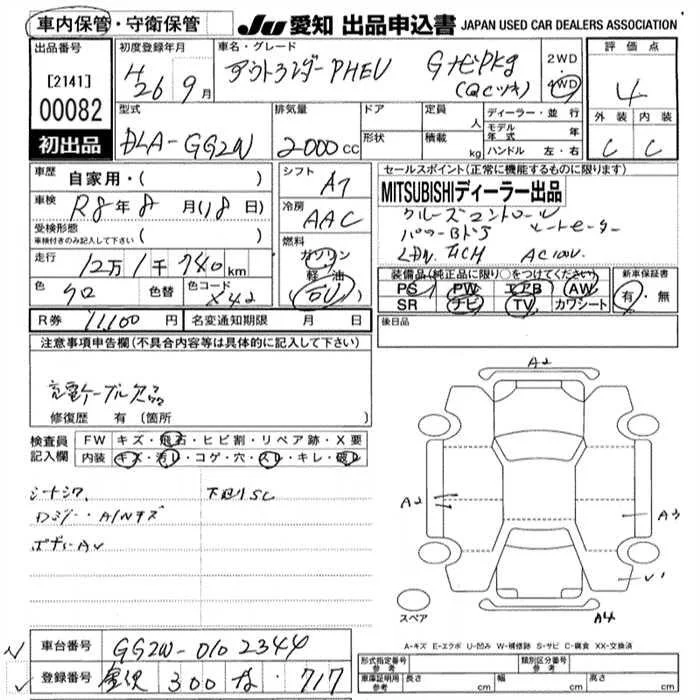 車内保管・守衛保管
JU 愛知 出品申込書 JAPAN USED CAR DEALERS ASSOCIATION
出品番号
[2141]
00082
初出品
初度登録年月
H26年9月
車名・グレード
アウトランダーPHEV Gナビpkg
2WD
・
4WD
評価点
4
外装 内装
C C
型式
DLA-GG2W
排気量
2000cc
ドア
形状
定員
人
積載
kg
ディーラー・並行
モデル年式 年
ハンドル 左・右
車歴 自家用・( )
車検 R8年8月(18日)
受検形態
車検付きのみ記入して下さい ( )
走行 12万1千740km
色 クロ 色替 色コード X42
シフト AT
冷房 AAC
燃料
ガソリン
軽・油
R券 11,100円 名変通知期限 月 日
セールスポイント(正常に機能するものに限ります)
MITSUBISHIディーラー出品
クルーズコントロール
パワーBドア シートヒーター
AC100V
装備品(純正品に限り○をつけてください)
PS PW エアB AW
SR ナビ TV カワシート
新車保証書
有・無
後日品
注意事項申告欄(不具合内容等は具体的に記入して下さい)
充電ケーブル欠品
修復歴 有(箇所
検査員記入欄
FW キズ・飛石・ヒビ割・リペア跡・X要
内装 キズ・汚レ・コゲ・穴・スレ・キレ・破レ
シートシワ 下廻りSC
A/Wキズ
ボデーAV
A2
A2
A3
A4
スペア
A-キズ E-エクボ U-凹み W-補修跡 S-サビ C-腐食 XX-交換済
車台番号 GG2W-0102344
登録番号 金沢 300 な 717
形式指定番号 参考
類別区分番号 参考
車庫証明用 参考 長さ cm 幅 cm 高さ cm